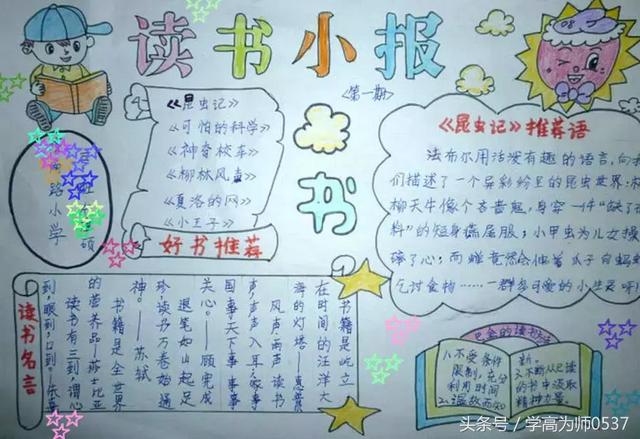 读书小报
《第一期》
《昆虫记》
《可怕的科学》
《神奇校车》
《柳林风声》
《夏洛的网》
《小王子》
好书推荐
书
路小学
《昆虫记》推荐语
法布尔用活泼有趣的语言,向
们描述了一个异彩纷呈的昆虫世界:
柳天牛像个吝啬鬼,身穿一件“缺了
料”的短身燕尾服;小甲虫为儿女操
碎了心;而蝉竟然会
乞讨食物……一群多可爱的小生灵呀!
读书名言
书籍是屹立
在时间的汪洋大
海的灯塔——惠
风声雨声读书
声声声入耳,家事
国事天下事事事
关心。——顾宪成
退笔如山起足
珍,读书万卷始通
神。——苏轼
书籍是全世界
的营养品——莎士比亚
读书有三到,谓心
到,眼到,口到。
巴金的读书方法
1.不受条件
限制,充分
利用时间
2.温故而知
新。
2.不断从已读
的书中汲取
精神力量。
头条号/学高为师0537